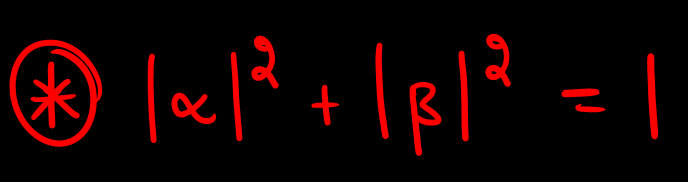 ⊛ |α|² + |β|² = 1